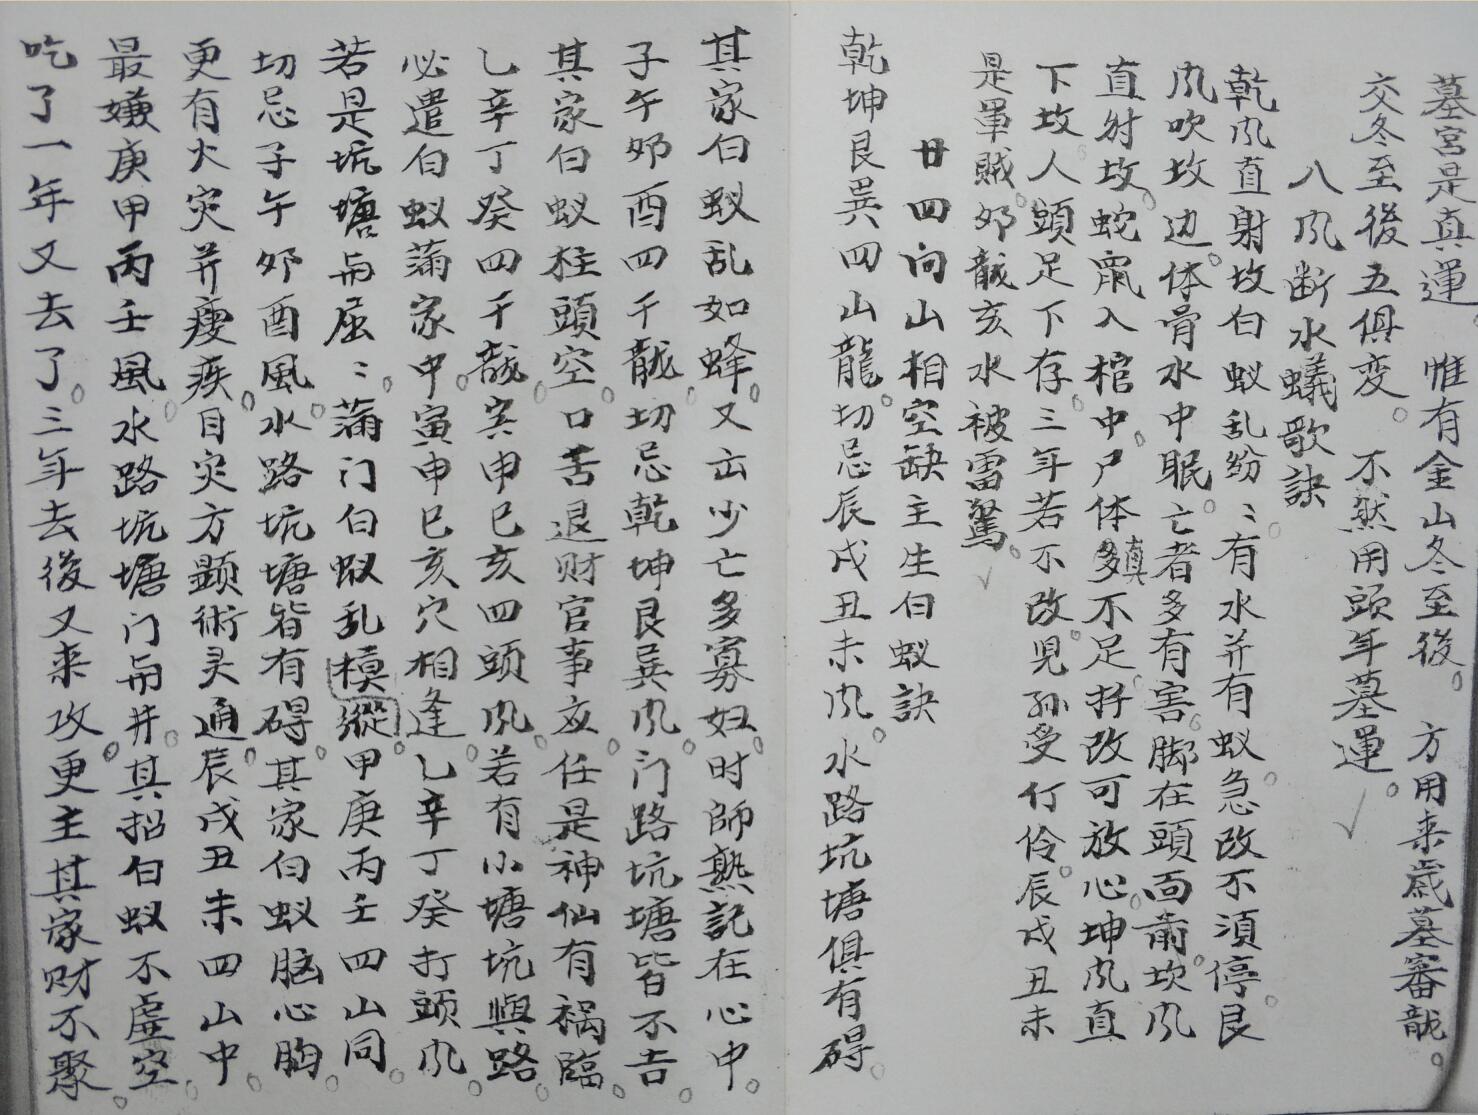 墓宮是真運。惟有金山冬至後。方用来歳墓審龍。
交冬至後五俱变。不然用頭年墓運。
八凨断水蟻歌訣
乾凨直射坟白蚁乱纷〻有水并有蚁。急改不湏停。艮
凨吹坟边。体骨水中眠。亡者多有害。脚在頭面前。坎凨
直射坟。蛇䑕入棺中。尸体多真不足。拆改可放心。坤凨直
下坟人頭足下存。三年若不改。児孙受仃伶。辰戌丑未
是軍賊。夘龍亥水被雷驚。
廿四向山相空缺主生白蚁訣
乾坤艮巽四山龍。切忌辰戌丑未凨。水路坑塘俱有碍。
其家白蚁乱如蜂。又云少亡多寡妇。时師熟記在心中。
子午夘酉四千龍。切忌乾坤艮巽凨。门路坑塘皆不吉。
其家白蚁柱頭空。口苦退财官事应。任是神仙有禍臨。
乚辛丁癸四千龍。寅申巳亥四頭凨。若有小塘坑與路。
必遣白蚁蒲家中。寅申巳亥穴相逢。乚辛丁癸打頭凨。
若是坑塘与屈〻。蒲门白蚁乱模縱。甲庚丙壬四山同。
切忌子午夘酉風。水路坑塘皆有碍。其家白蚁脑心胸。
更有火灾并瘦疾。目灾方顕術灵通。辰戌丑未四山中。
最嫌庚甲丙壬風。水路坑塘门与井。其招白蚁不虚空。
吃了一年又去了。三年去後又来攻。更主其家财不聚。